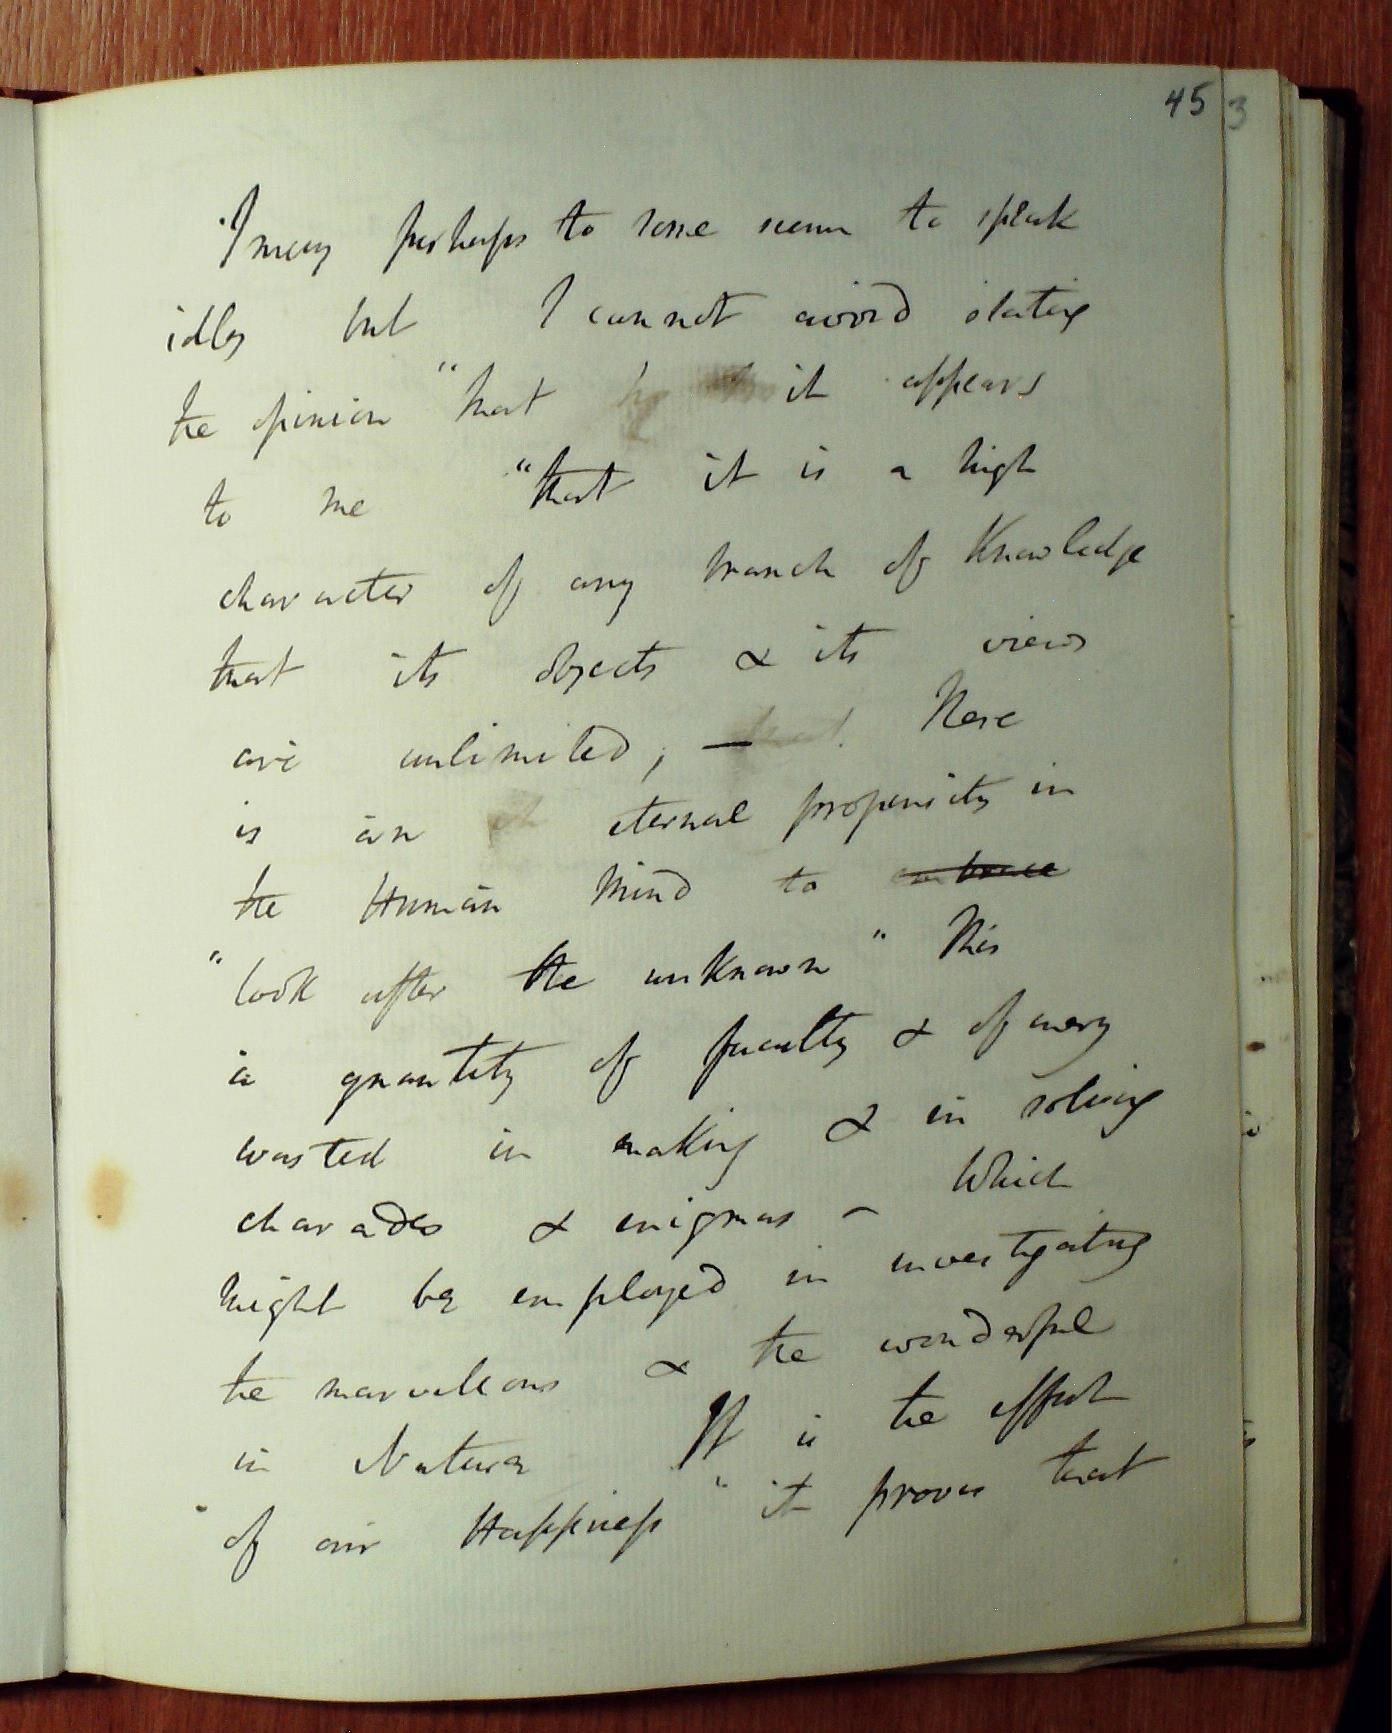 45 3
I may perhaps to some seem to speak
idly but I cannot avoid stating
the opinion "that it appears
to me "that it is a high
character of any branch of Knowledge
that its objects & its views
are unlimited; — There
is an eternal propensity in
the Human Mind to embrace
"look after the unknown" This
is quantity of faculty & of
wasted in making & in solving
charades & enigmas – Which
might be employed in investigating
the marvellous & the wonderful
in Nature It is the effect
of our Happiness " it proves that